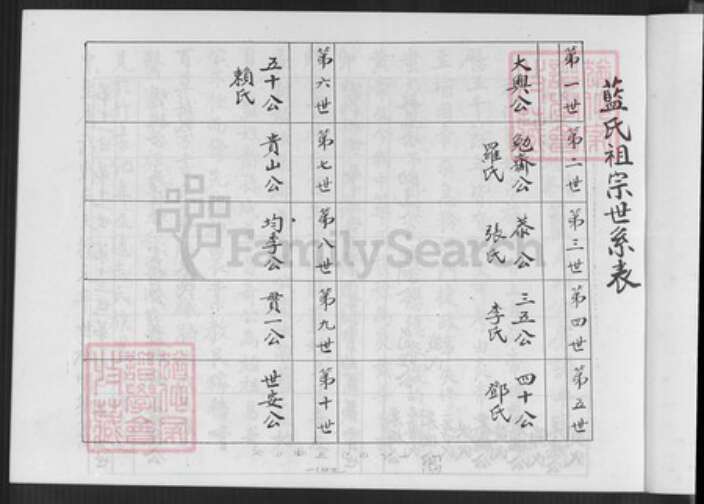 藍氏祖宗世系表
第一世
大興公
第二世
勉齋公
羅氏
第三世
恭公
張氏
第四世
三五公
李氏
第五世
四十公
鄧氏
第六世
五十公
賴氏
第七世
貴山公
第八世
均季公
第九世
貫一公
第十世
世安公
FamilySearch